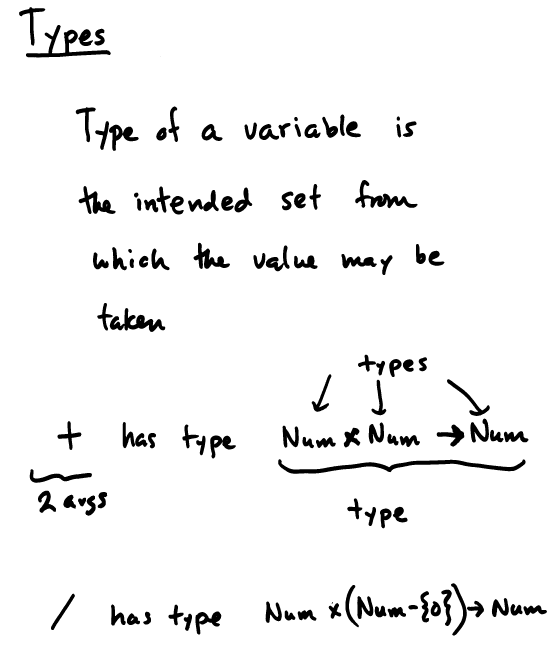 Types
Type of a variable is
the intended set from
which the value may be
taken
types
+ has type Num × Num → Num
2 args
type
/ has type Num × (Num-{0}) → Num